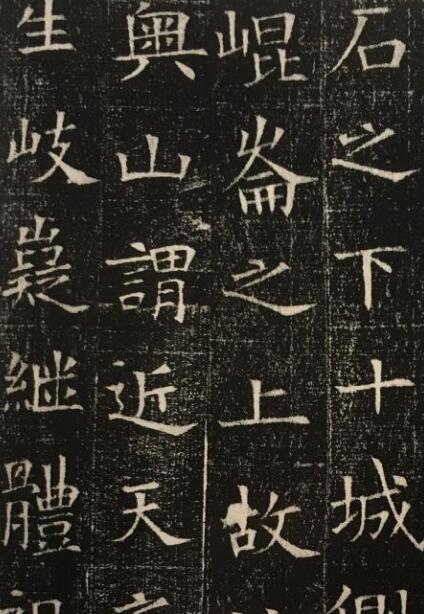 石之下十城
崐崘之上故
輿山謂近天
生岐嶷継體